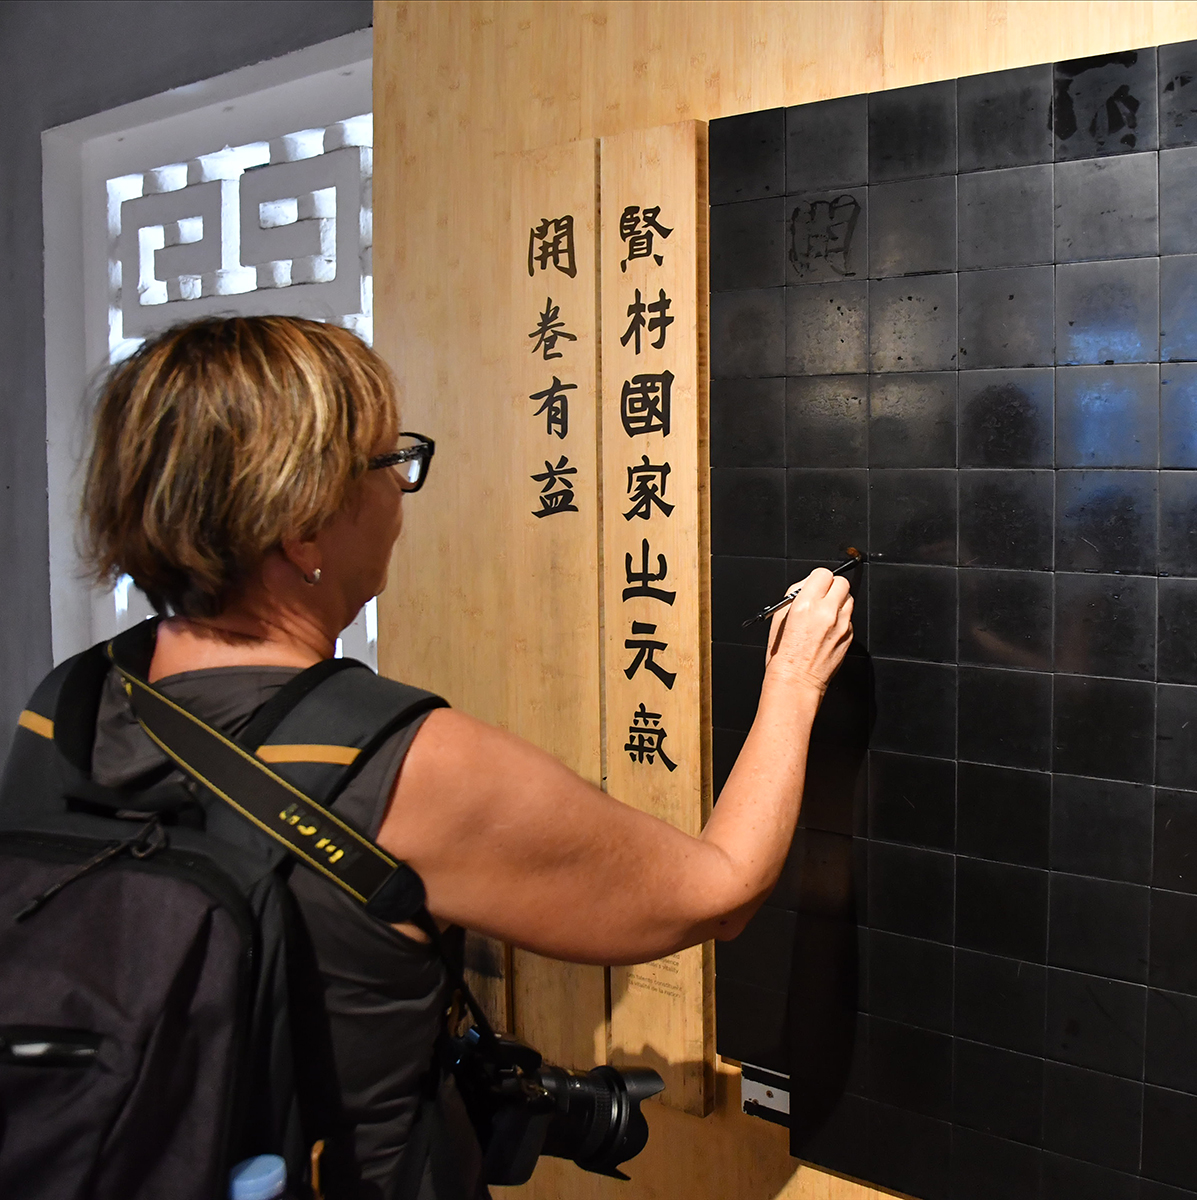 賢材國家之元氣
開卷有益
開